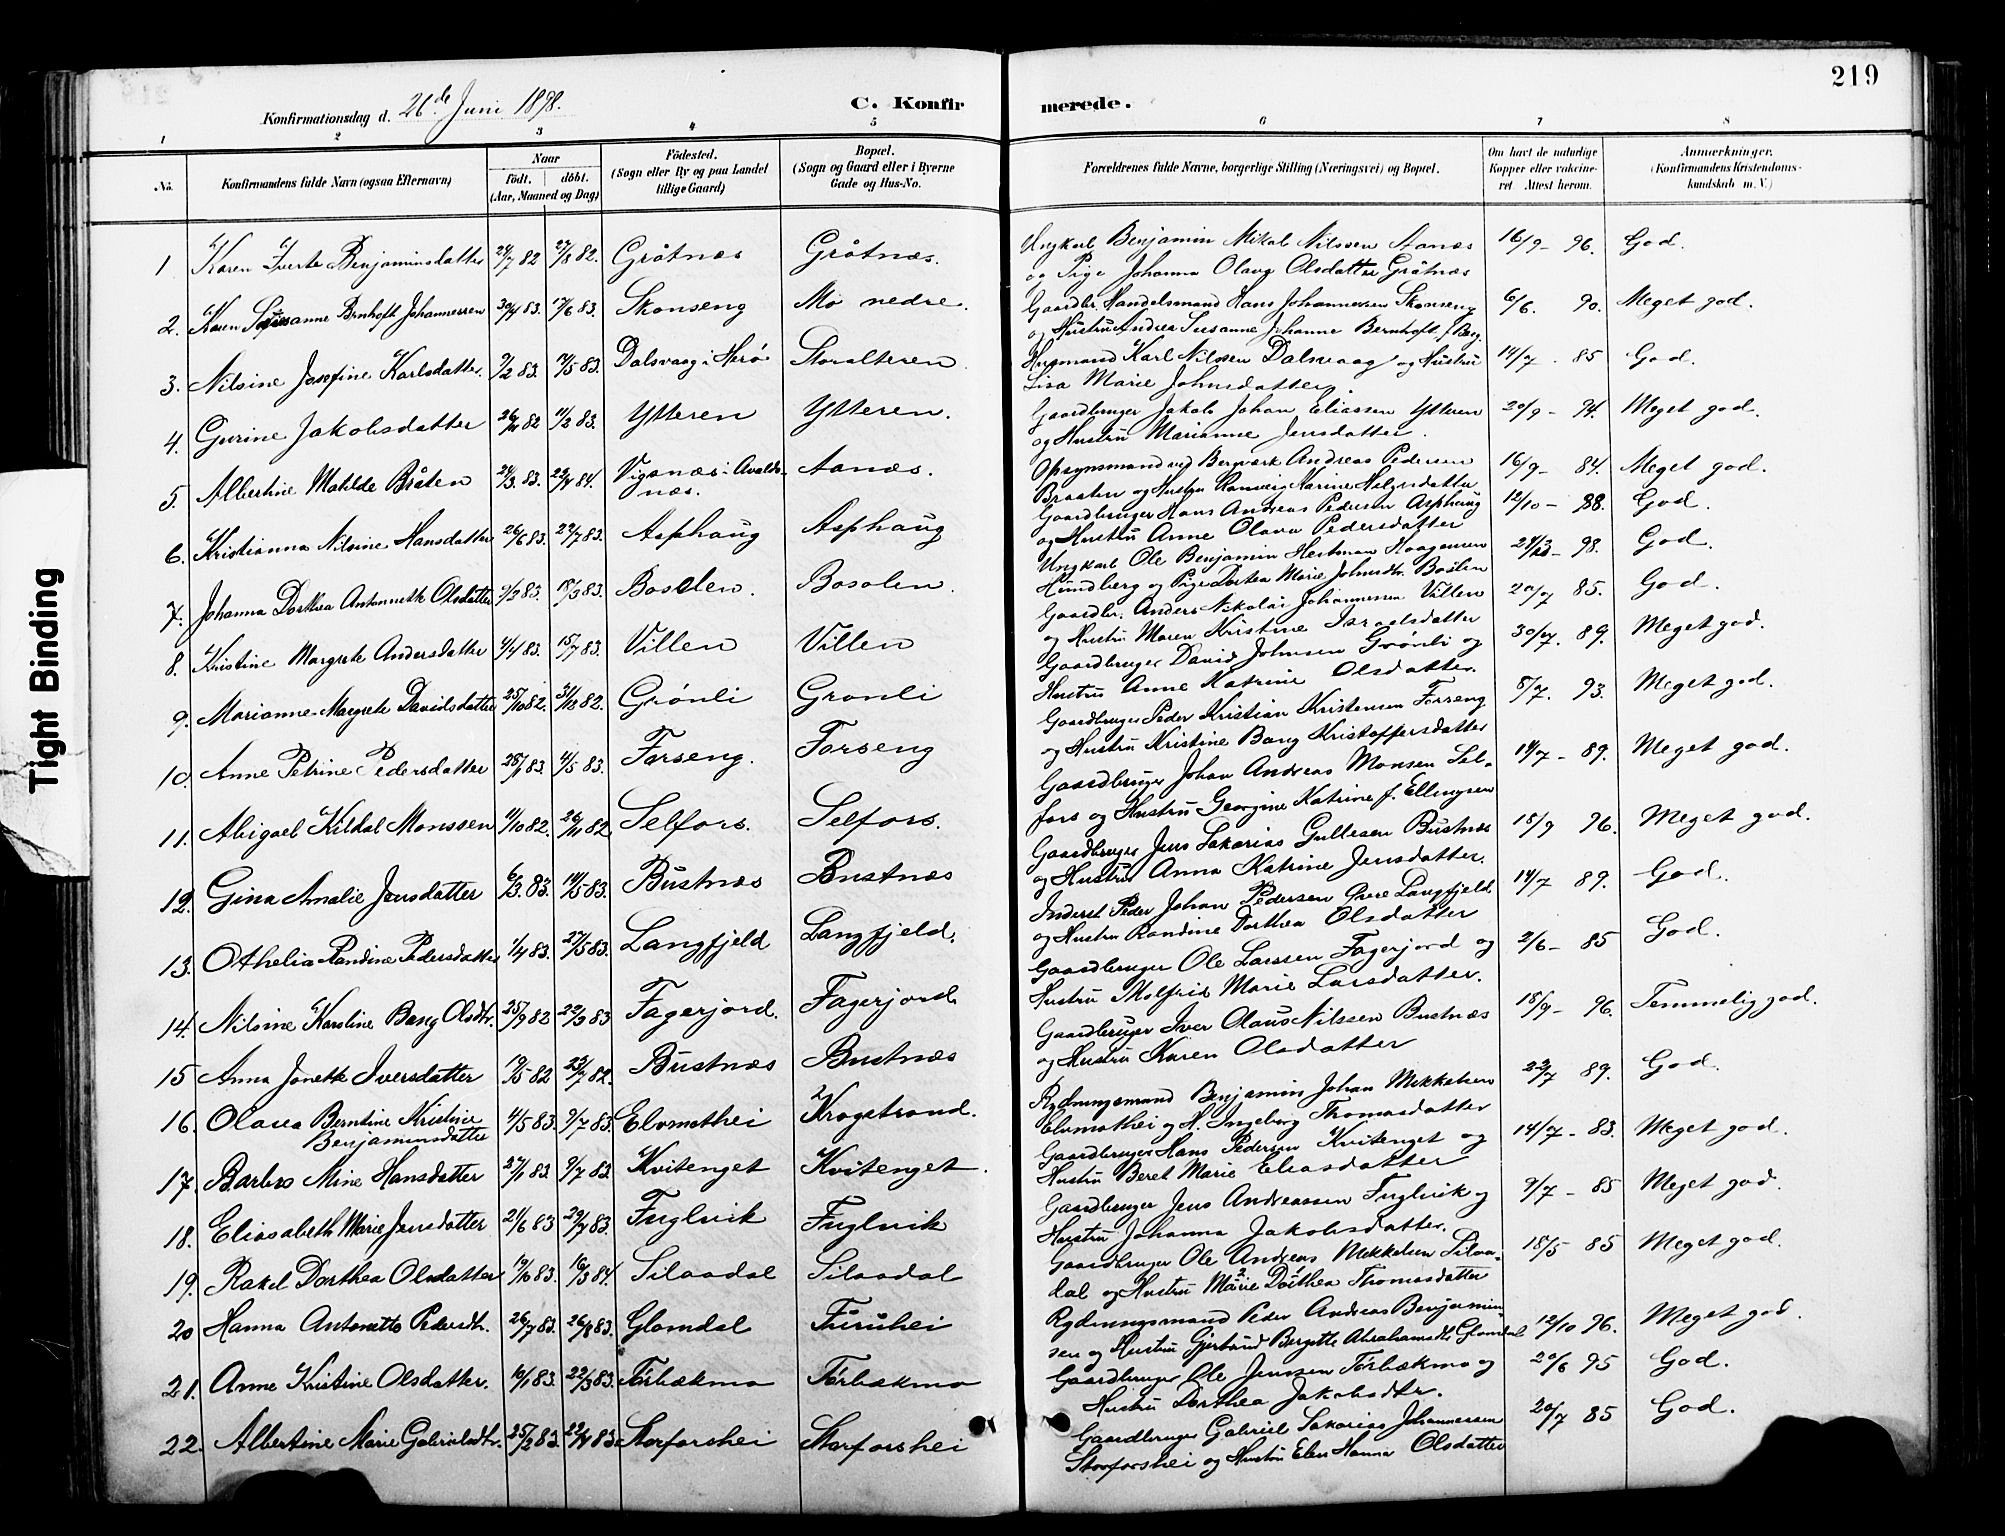 219
Konfirmationsdag d. 26de Juni 1898.
C. Konfirmerede.
1 2 3 4 5 6 7 8
No.
Konfirmandens fulde Navn (ogsaa Efternavn)
Naar
født. døbt.
(Aar, Maaned og Dag)
Fødested.
(Sogn eller By og paa Landet
tillige Gaard)
Bopæl.
(Sogn og Gaard eller i Byerne
Gade og Hus-No.
Forældrenes fulde Navne, borgerlige Stilling (Næringsvei) og Bopæl.
Om havt de naturlige
Kopper eller vakcine-
ret. Attest herom.
Anmærkninger.
(Konfirmandens Kristendoms-
kundskab m. V.)
Tight Binding
1 Karen Iverte Benjaminsdatter 27/8 82. Gråtnæs Gråtnæs. 16/9 - 96. God.
Ungkarl Benjamin Mikal Nilssen Aanæs
og Pige Johanna Olava Olsdatter Gråtnæs
2. Karen Susanne Bernhoft Johannessen 30/4 83. 17/6 83. Skonseng Mo nedre. 6/6. 90. Meget god.
Gaardbr. Handelsmand Hans Johannessen Skonseng
og Hustru Andrea Susanne Johanne Bernhoft f. Berg
3. Nilsine Josefine Karlsdatter. 7/2 83. 14/5 83. Dalsvaag i Herø Storalteren 14/7 - 85 God.
Husmand Karl Nilssen Dalsvaag og Hustru
Lisa Marie Johnsdatter
4. Gurine Jakobsdatter 26/11 82 11/2 83. Ytteren Ytteren. 20/9 - 94. Meget god.
Gaardbruger Jakob Johan Eliassen Ytteren
og Hustru Marianne Jensdatter.
5. Albertine Matilde Bråten 24/3. 83. 22/4 84. Vigsnæs i Avalds-
næs. Aanæs. 16/9 - 84. Meget god.
Opsynsmand ved Bergværk Andreas Pedersen
Braaten og Hustru Karine Helgesdatter
6. Kristianna Nilsine Hansdatter 26/6 83. 29/7 83. Asphaug Asphaug 12/10 - 88. God.
Gaardbruger Hans Andreas Pedersen Asphaug
og Hustru Anne Olava Pedersdatter
7. Johanna Dorthea Antonnette Olsdatter 9/3 83. 18/3 83. Bosolen. Bosolen. 98. God.
Ungkarl Ole Benjamin Hertman Haagensen
Hundberg og Pige Dortea Marie Johnsdtr. Bosolen
8. Kristine Margrete Andersdatter 4/4 83. 15/7 83. Villen Villen 20/7 85. God.
Gaardbr. Anders Nikolai Johannessen Villen
og Hustru Maren Kristine Israelsdatter
9. Marianne Margrete Davidsdatter 25/10 82. 31/12 82. Grönli Grønli 30/7. 89. Meget god.
Gaardbruger David Johnsen Grönli og
Hustru Anne Katrine Olsdatter.
10. Anne Petrine Pedersdatter 28/1 83. 4/5 83. Forseng. Forseng 8/7. 93. Meget god.
Gaardbruger Peder Kristian Kristensen Forseng
og Hustru Kristine Bang Kristoffersdatter
11. Abigael Kildal Monssen 4/10 82. 26/11 82 Selfors. Selfors. 14/7 - 89. Meget god.
Gaardbruger Johan Andreas Monsen Sel-
fors og Hustru Georgine Katrine f. Ellingsen
12. Gina Amalie Jensdatter 6/3. 83. 14/5 83. Bustnæs Bustnæs 18/9 96. Meget god.
Gaardbruger Jens Sakarias Gullesen Bustnæs
og Hustru Anna Katrine Jensdatter.
13. Othelia Randine Pedersdatter 1/4 83. 27/5 83. Langfjeld Langfjeld. 14/7 89. God.
Inderst Peder Johan Pedersen Øvre Langfjeld
og Hustru Randine Dorthea Olsdatter
14. Nilsine Karoline Bang Olsdtr. 25/9 82 22/3 83 Fagerjord. Fagerjord 2/6 - 85 God.
Gaardbruger Ole Larssen Fagerjord og
Hustru Molfrid Marie Larsdatter.
15 Anna Jonette Iversdatter 19/5 82 23/7 82. Bustnæs Bustnæs 18/9 - 96. Temmelig god.
Gaardbruger Iver Olaus Nilssen Bustnæs
og Hustru Karen Olsdatter
16. Olava Berntine Kristine
Benjaminsdatter 4/5 83. 9/7 83. Elvmothei Krogstrand. 22/7 89. God.
Rydningsmand Benjamin Johan Mikkelsen
Elvmothei og H. Ingeborg Thomasdatter
17. Barbro Mine Hansdatter 27/1 83. 9/7 83. Kvitenget Kvitenget. 14/7 - 83. Meget god.
Gaardbruger Hans Pedersen Kvitenget og
Hustru Beret Marie Eliasdatter
18. Eliasabeth Marie Jensdatter 21/6 83 29/7 83. Fuglvik Fuglvik 9/7 - 85 Meget god.
Gaardbruger Jens Andreassen Fuglvik og
Hustru Johanna Jakobsdatter.
19. Rakel Dorthea Olsdatter 19/10 83. 16/3 84. Silaadal Silaadal 18/5 85 Meget god.
Gaardbruger Ole Andreas Mikkelsen Silaa-
dal og Hustru Marie Dorthea Thomasdatter
20 Hanna Antonette Pedersdtr. 26/7 83. 26/8 83. Glomdal Furuhei 12/10 96. Meget god.
Rydningsmand Peder Andreas Benjamin-
sen og Hustru Gjertrud Bergitte Abrahamsdtr. Glomdal
21. Anne Kristine Olsdatter. 10/1 83. 22/3 83. Tørbækmo Tørbækmo 20/6 95 God.
Gaardbruger Ole Jenssen Tørbækmo og
Hustru Dorthea Jakobsdtr.
22. Albertine Marie Gabrielsdtr. 25/2 83. 22/4 83. Storforshei Storforshei 20/7 85 God.
Gaardbruger Gabriel Sakarias Johannessen
Storforshei og Hustru Elen Hanna Olsdatter